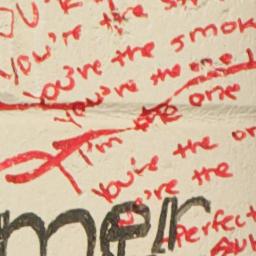 You're the
You're the smok
You're the one I
I'm the one
You're the or
you're the
perfect
mer